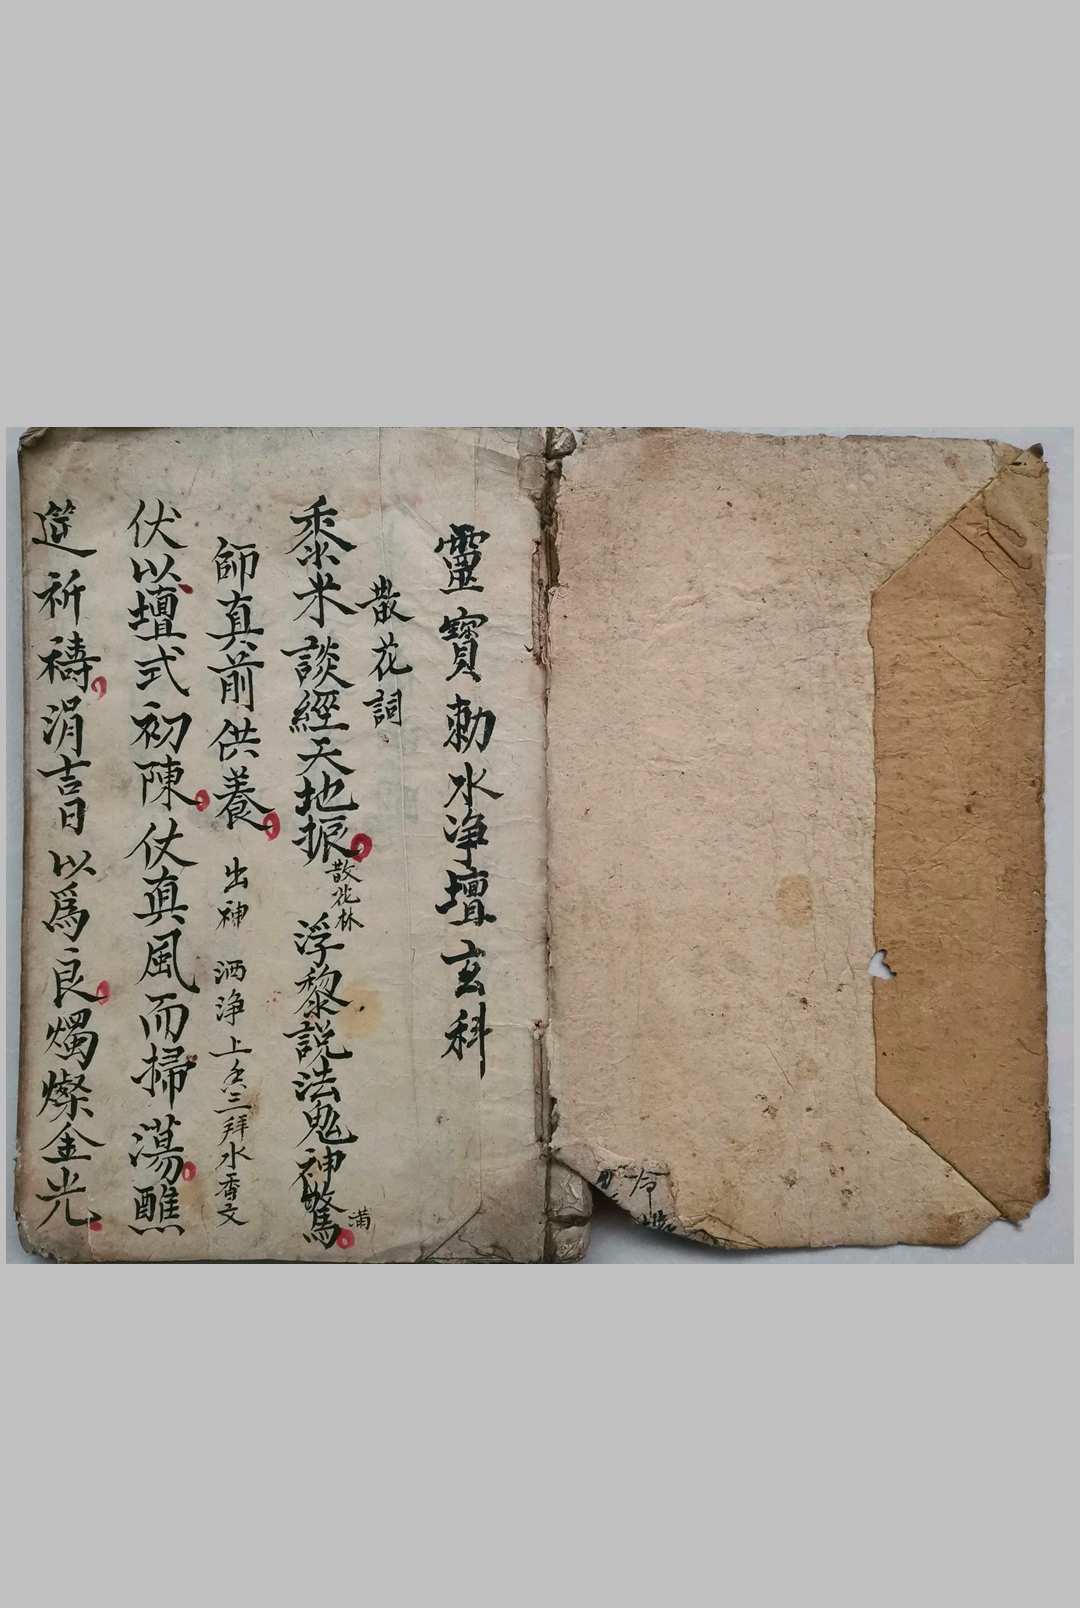 靈寶勅水净壇玄科
散花詞
黍米談經天地振 散花林 浮黎説法鬼神驚 満
師真前供養 出神 洒净 上香三拜水香文
伏以壇式初陳仗真風而掃蕩醮
筵祈禱涓吉日以爲良燭燦金光